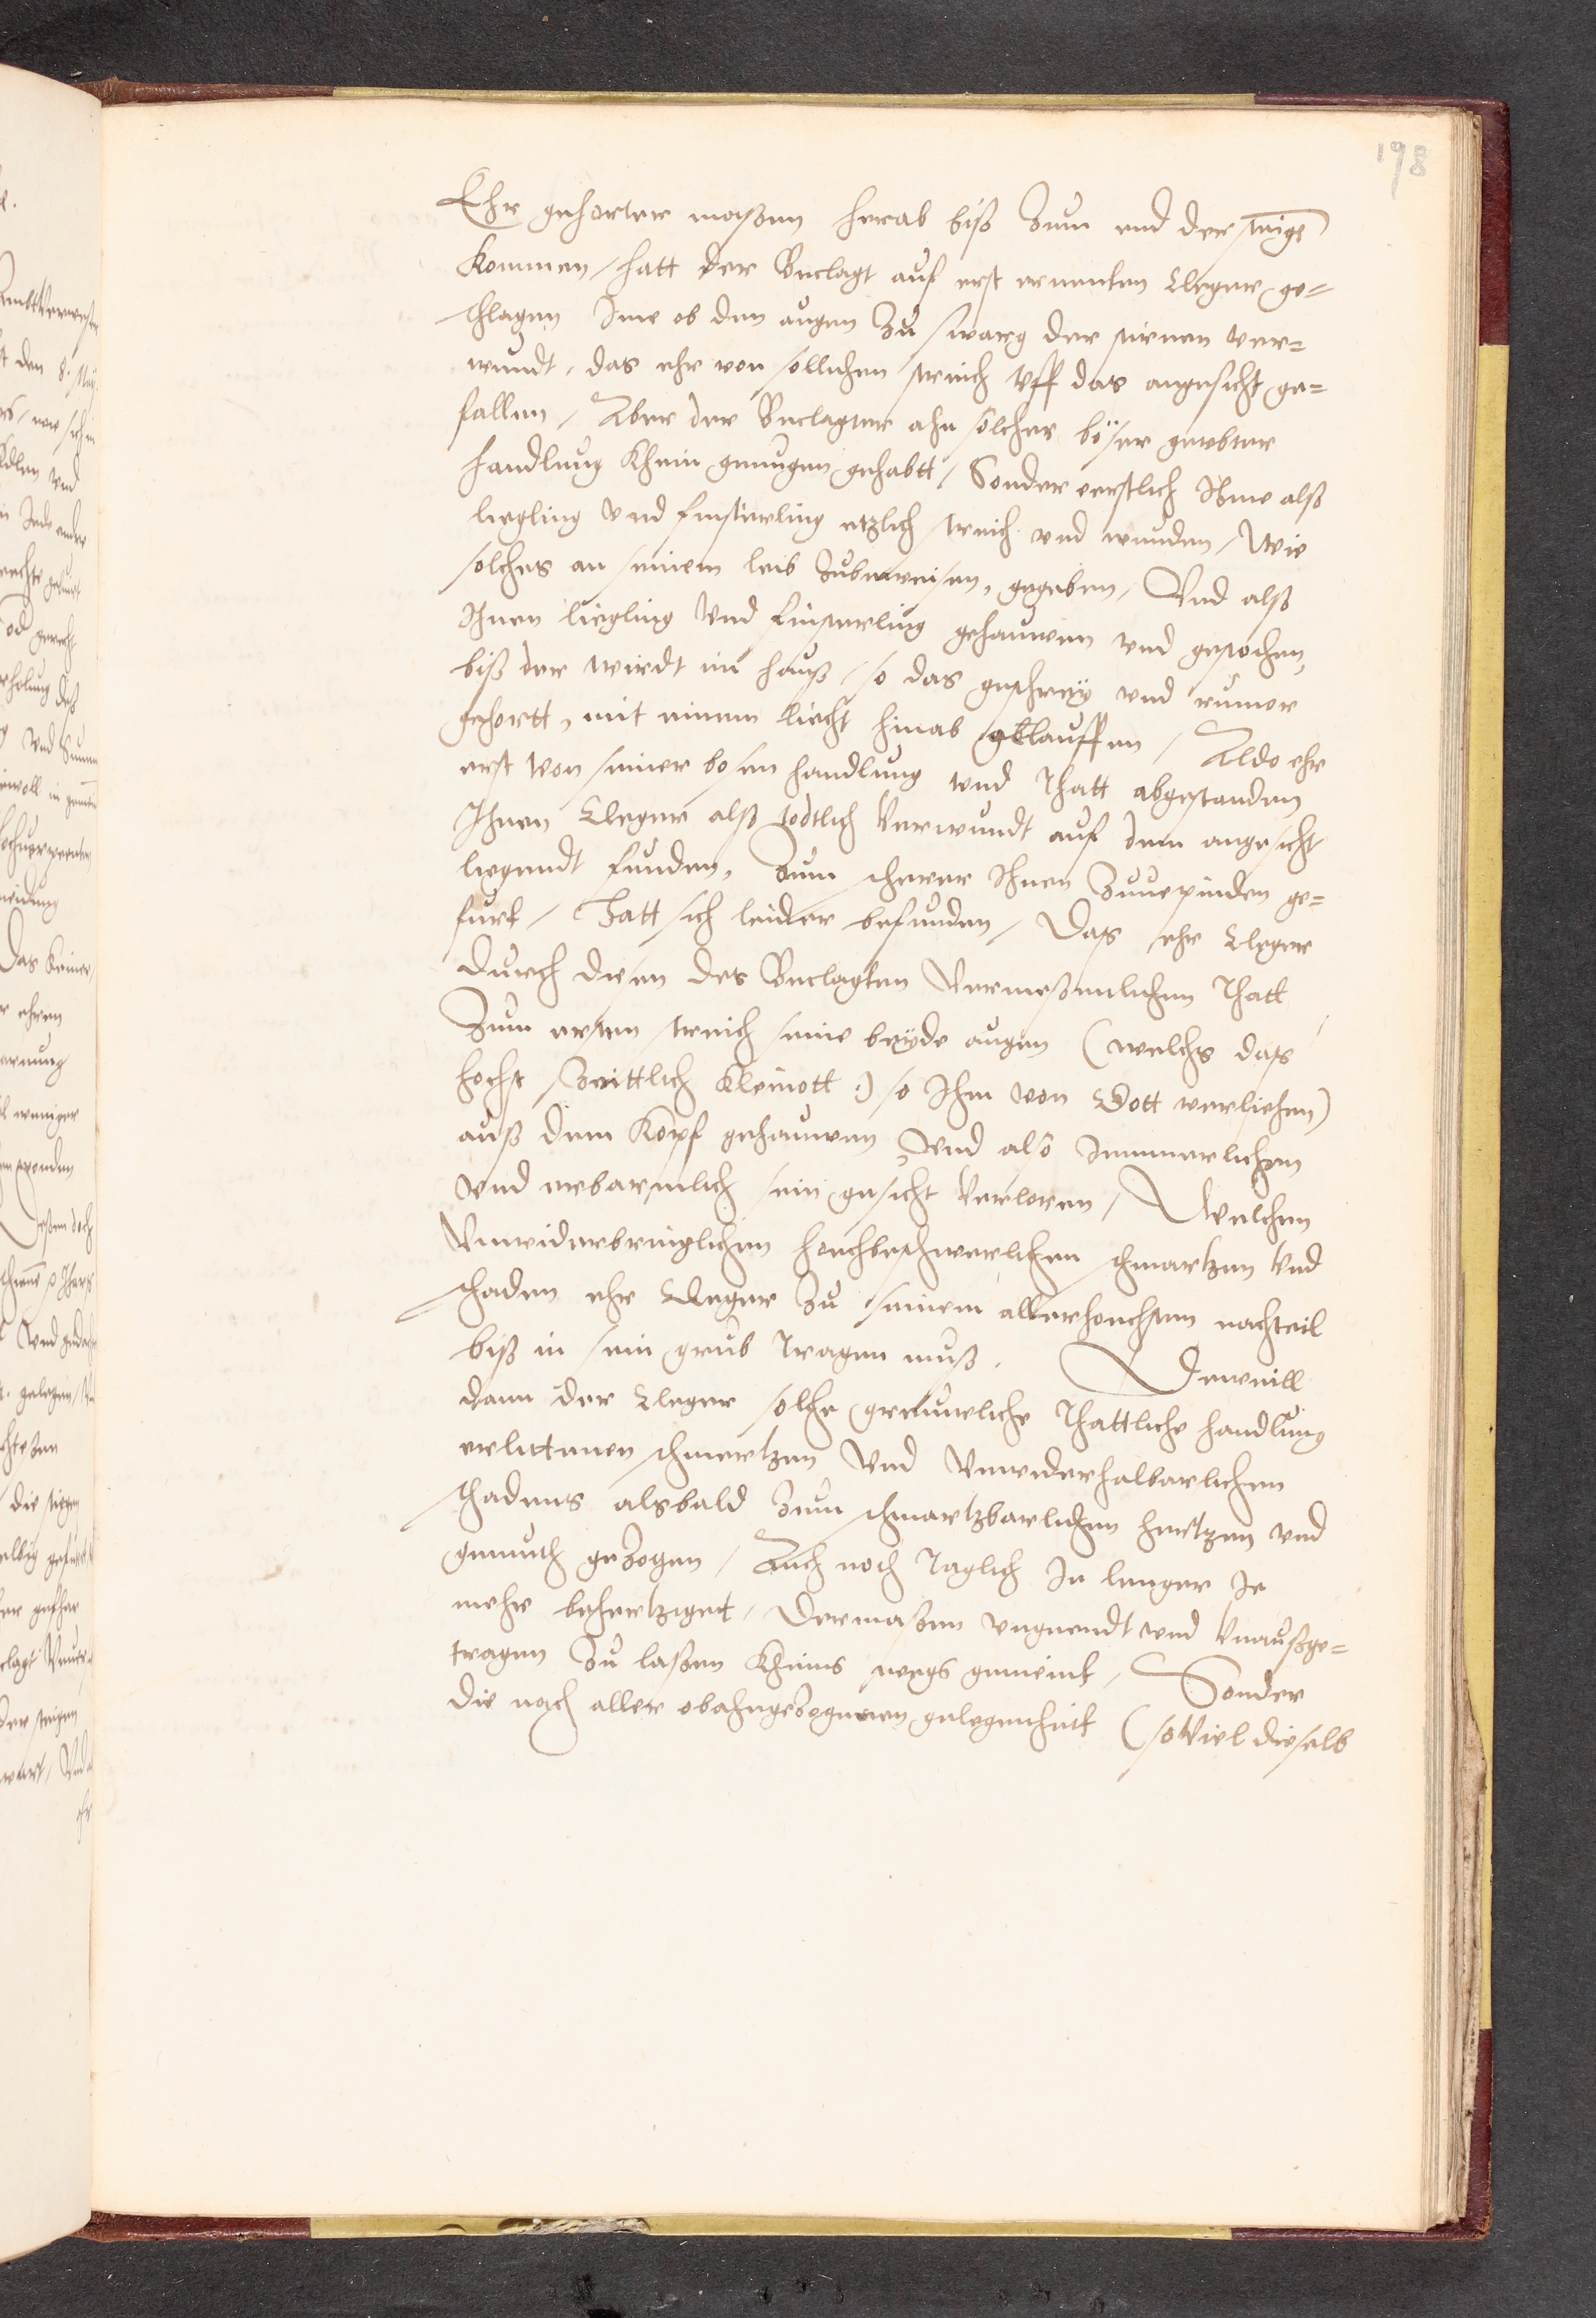 198
Ehr gehorter maßen herab biß zum end der steige
kommen / hatt der Beclagt auf erst ernenten Cleger ge=
schlagen Ime ob den augen zu zwerg der stirnen ver=
wundt, das ehr von sollichen streich vff das angesicht ge=
fallen / Aber der Beclagter ahn solcher böser geubter
handlung khein genugen gehabtt / Sonder erstlich Ihme alß
liegling vnd finsterling etzlich streich vnd wunden / Wie
solches an seinem leib zubeweisen, gegeben / Vnd alß
Ihnen liegling vnd finsterling gehauwen vnd gestochen,
biß der wirdt im hauß / so das geschrey vnd rumor
gehortt, mit einem liecht hinab geloffen / Aldo ehr
erst von seiner bosen handlung vnd thatt abgestanden
Ihnen Cleger alß todtlich verwundt auf dem angesicht
liegendt funden, Zum scherer Ihnen zuuerpinden ge=
furt / Hatt sich leider befunden / Das ehr Cleger
durch diesen des Beclagten vermeßenlichen thatt
Zum ersten streich seine beyde augen (welchs das
hochst zeittlich kleinott :) so Ihm von Gott verliehen)
auß dem kopf gehauwen, vnd also Jemmerlichen
vnd erbarmlich sein gesicht verloren / Welchen
vnwiderbringlichen hochbeschwerlichen schmertzen vnd
schaden ehr Cleger zu seinem allerhochsten nachteil
biß in sein grub tragen muß. Dieweill
dann der Cleger solche greuweliche thattliche handlung
erlittenen schmertzen vnd vnwiderhalbarlichen
schadens alsbald zum schmertzbarlichen hertzen vnd
gemuth gezogen / Auch noch taglich Je lenger Je
mehr behertziget / Dermaßen vngeendt vnd vnaußge=
tragen zu laßen kheins wegs gemeint / Sonder
die nach aller obahngezognen gelegenheit (so viel dieselb